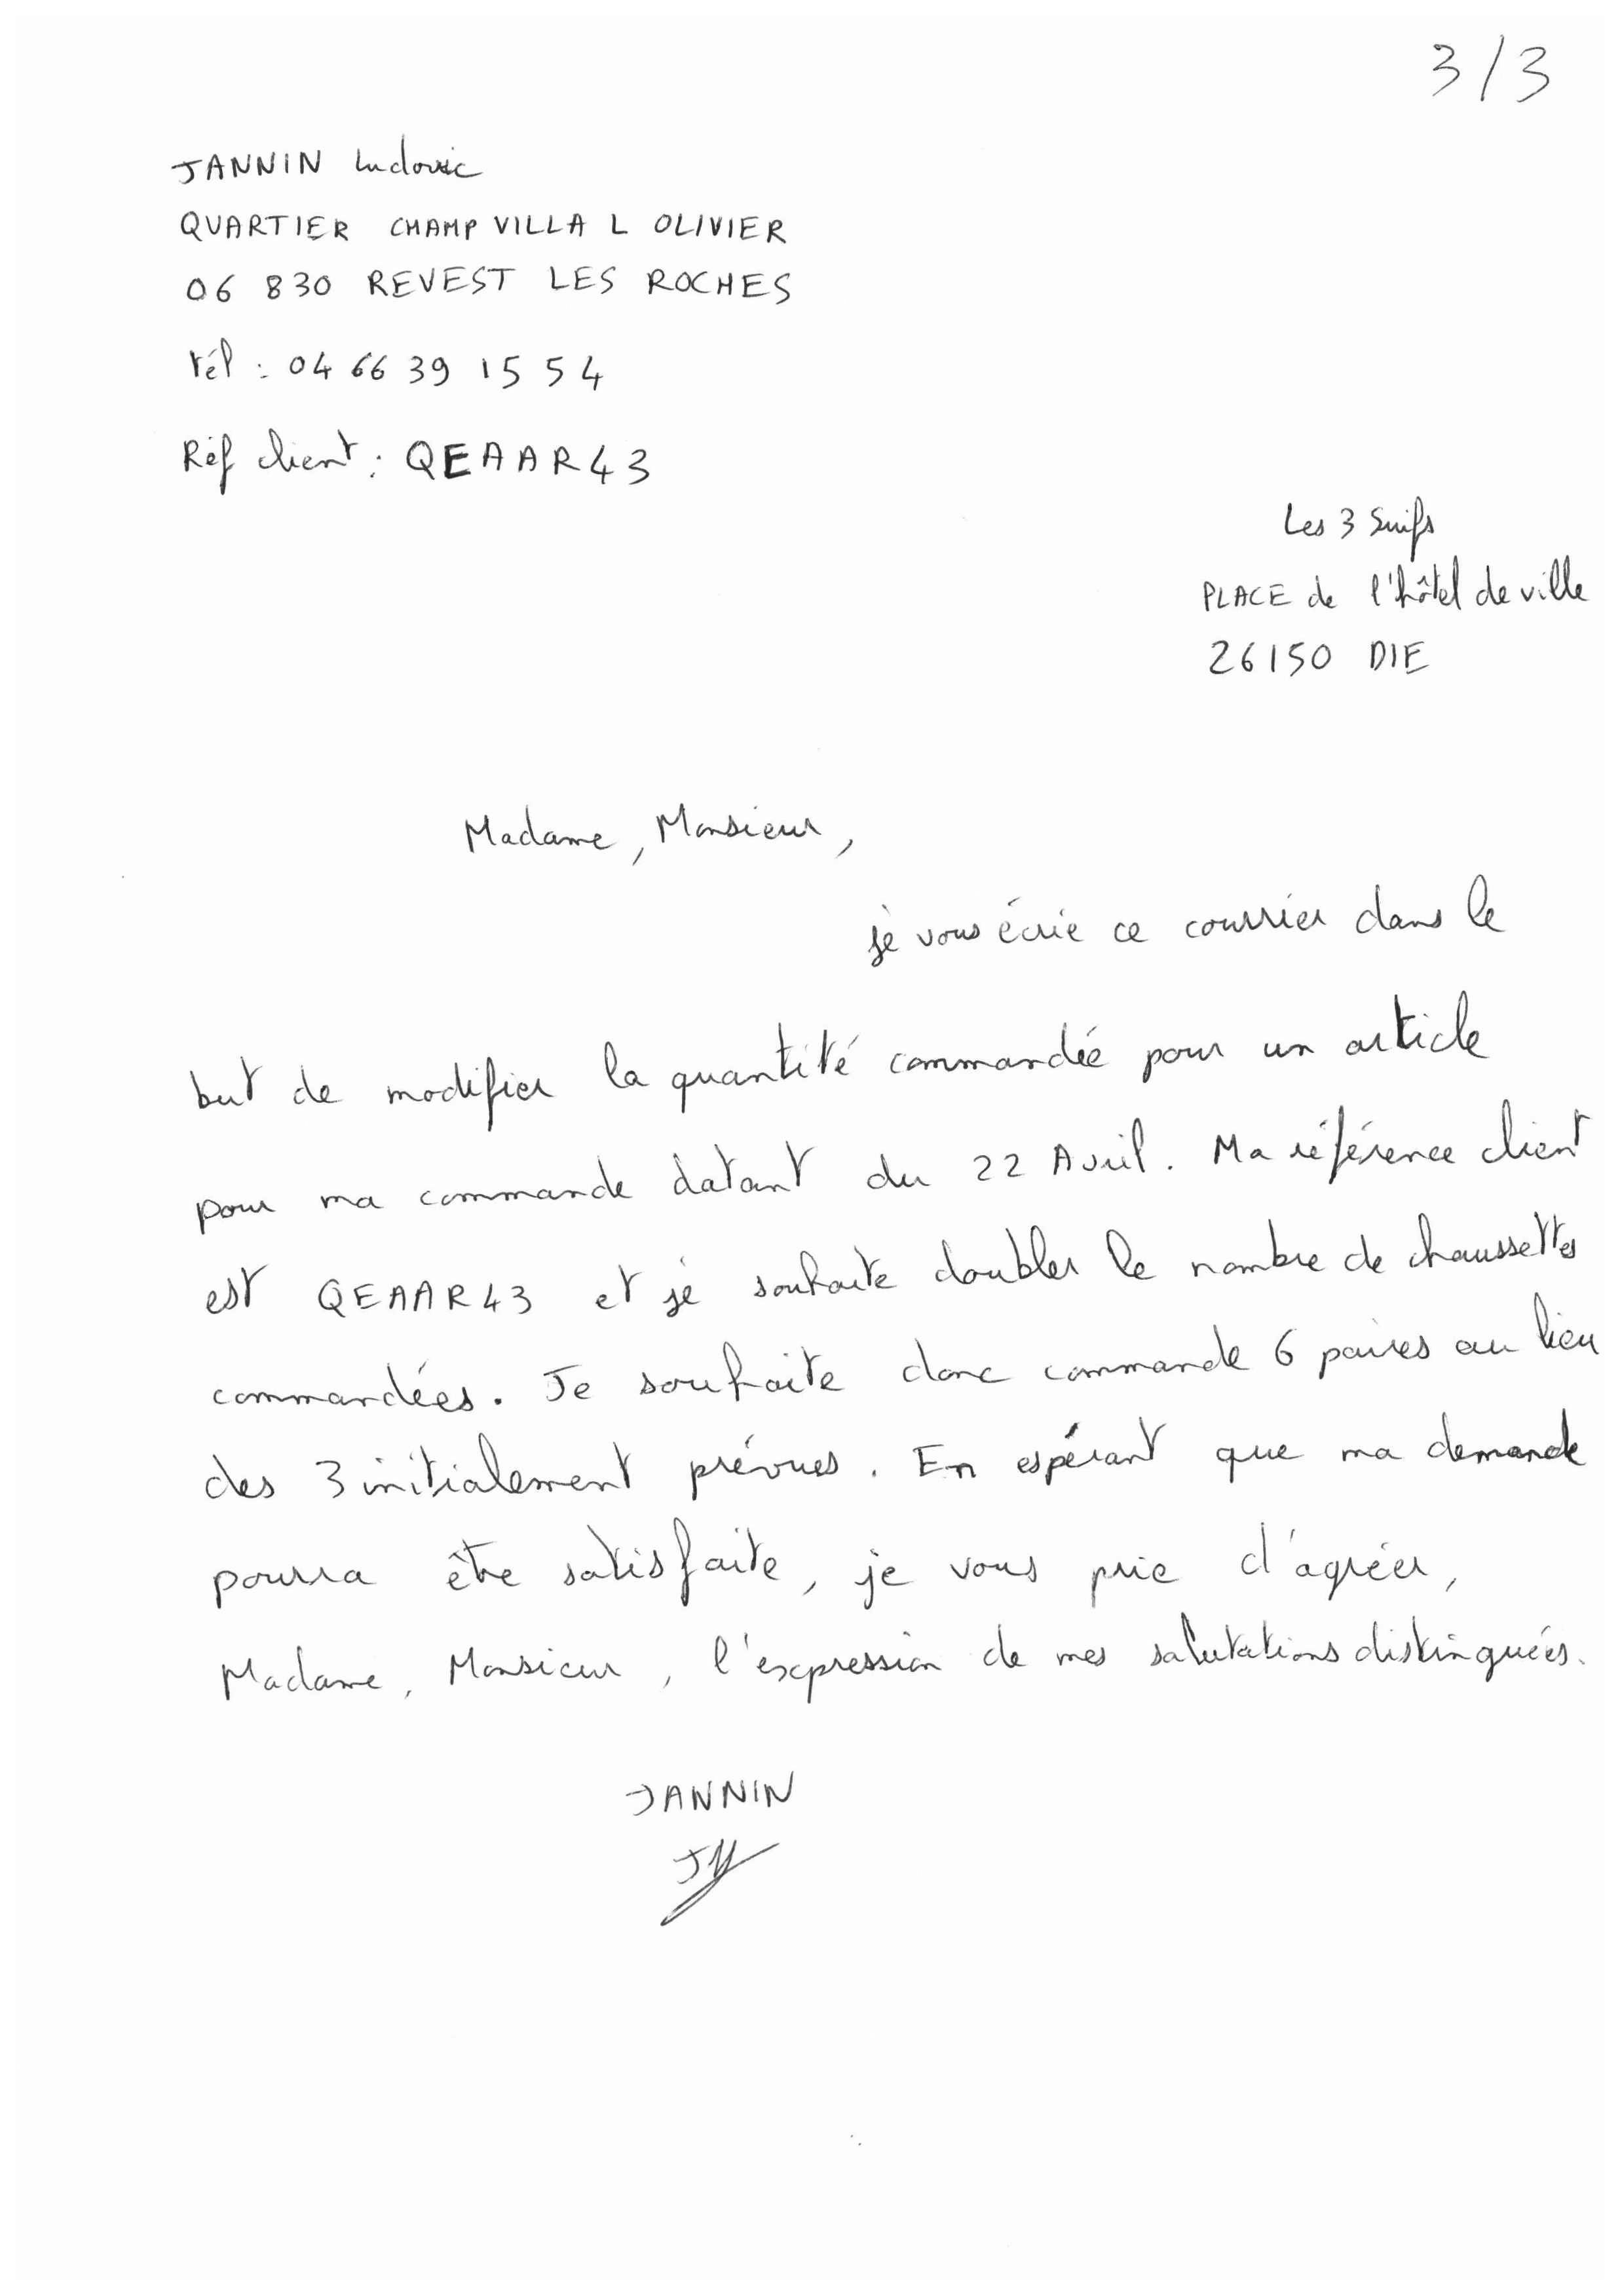 3/3
JANNIN Ludovic
QUARTIER CHAMP VILLA L OLIVIER
06 830 REVEST LES ROCHES
tél : 04 66 39 15 54
Réf client : QEAAR43
Les 3 Suifs
PLACE de l'hôtel de ville
26150 DIE
Madame, Monsieur,
je vous écrie ce courrier dans le
but de modifier la quantité commandée pour un article
pour ma commande datant du 22 Avril. Ma référence client
est QEAAR43 et je souhaite doubler le nombre de chaussettes
commandées. Je souhaite donc commande 6 paires au lieu
des 3 initialement prévues. En espérant que ma demande
pourra être satisfaite, je vous prie d'agréer,
Madame, Monsieur, l'expression de mes salutations distinguées.
JANNIN